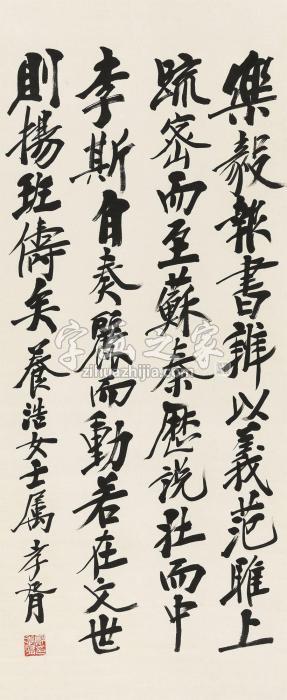 樂毅報書辨以義范雎上
疏密而至蘇秦歷說壯而中
李斯自奏麗而動若在文世
則揚班儔矣 養浩女士属 孝胥
字画之家
zihuazhijia.com